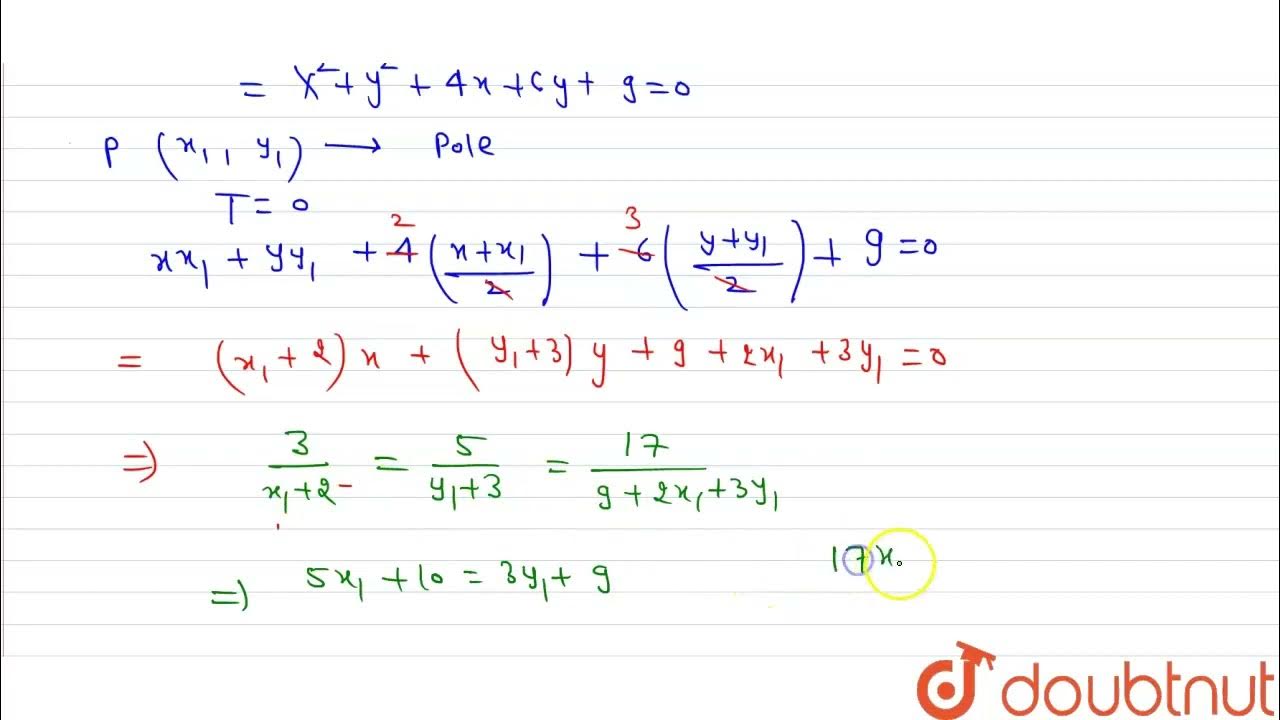 = x² + y² + 4x + 6y + 9 = 0
P (x₁, y₁) → Pole
T = 0
xx₁ + yy₁ + 4 2 ((x + x₁)/2) + 6 3 ((y + y₁)/2) + 9 = 0
= (x₁ + 2) x + (y₁ + 3) y + 9 + 2x₁ + 3y₁ = 0
⇒ 3/(x₁ + 2) = 5/(y₁ + 3) = 17/(9 + 2x₁ + 3y₁)
⇒ 5x₁ + 10 = 3y₁ + 9 17x
doubtnut